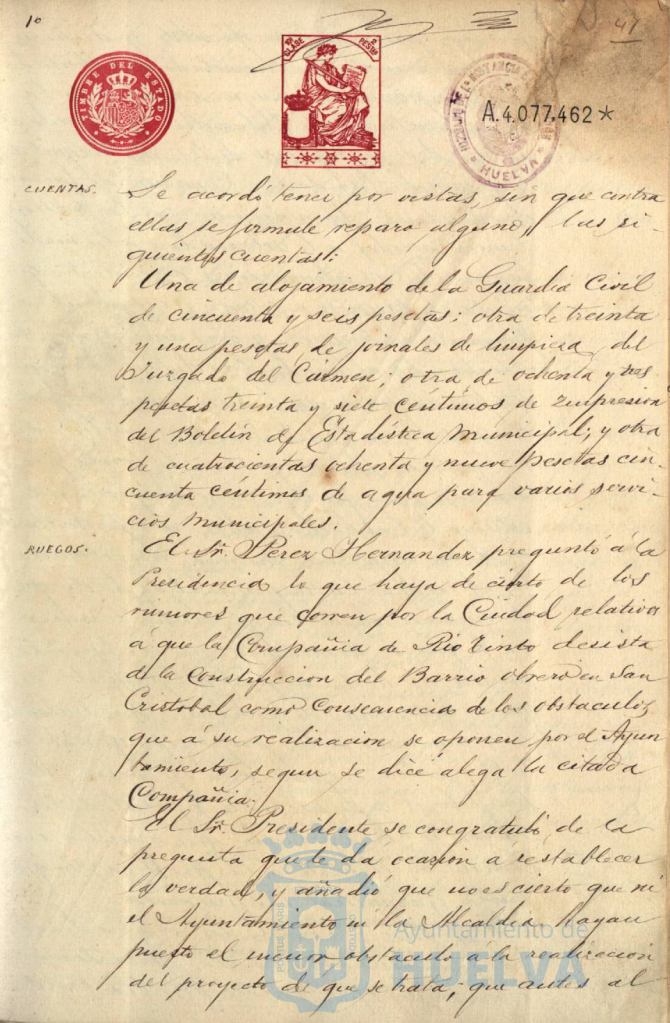 10
47
TIMBRE DEL ESTADO
CLASE
PESETAS
A.4.077.462*
HUELVA
CUENTAS.
Se acordó tener por vistas, sin que contra
ellas se formule reparo alguno, las si-
guientes cuentas:
Una de alojamiento de la Guardia Civil
de cincuenta y seis pesetas; otra de treinta
y una pesetas de jornales de limpieza del
Juzgado del Carmen; otra de ochenta y tres
pesetas treinta y siete centimos de Impresion
del Boletin de Estadistica Municipal; y otra
de cuatrocientas ochenta y nueve pesetas cin-
cuenta céntimos de agua para varios servi-
cios municipales.
RUEGOS.
El Sr. Perez Hernandez preguntó á la
Presidencia lo que haya de cierto de los
rumores que corren por la Ciudad relativa
á que la Compañia de Rio Tinto desista
de la Construccion del Barrio obrero en San
Cristobal como consecuencia de los obstaculos
que á su realizacion se oponen por el Ayun-
tamiento, segun se dice alega la citada
Compañia.
El Sr. Presidente se congratuló de la
pregunta que le dá ocasion á restablecer
la verdad, y añadió que no es cierto que ni
el Ayuntamiento ni la Alcaldia hayan
puesto el menor obstaculo á la realizacion
del proyecto de que se trata; que antes al
Ayuntamiento de
HUELVA